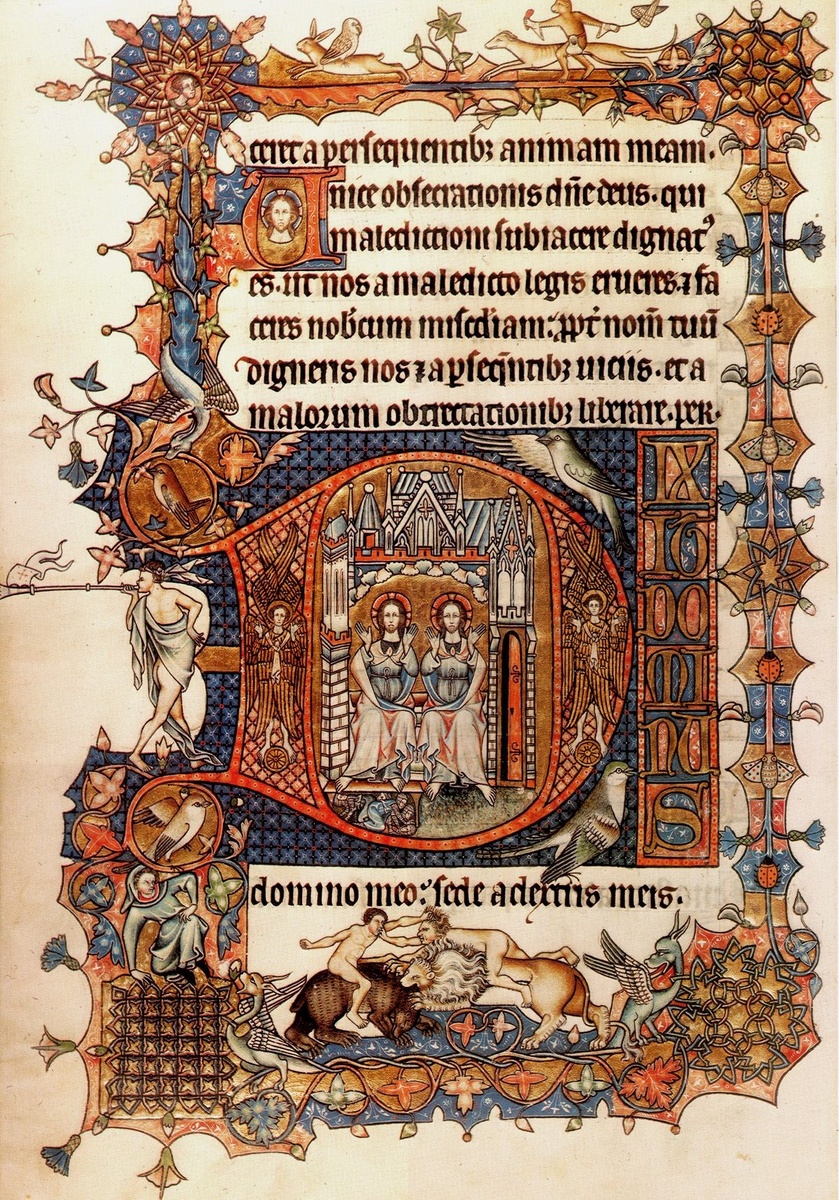 ceret a persequentibꝫ animam meam.
Unice obsecrationis dñe deus. qui
maledictioni subiacere dignatꝰ
es. ut nos a maledicto legis erueres. ⁊ fa
ceres nob'cum misc'diam: ꝓpt' nom̃ tuũ
digneris nos ⁊ a ꝑseq̃ntibꝫ uiciis. et a
malorum obtrectationibꝫ liberare. per.
D
IX
IT
DO
MI
NU
S
domino meo: sede a dextris meis.